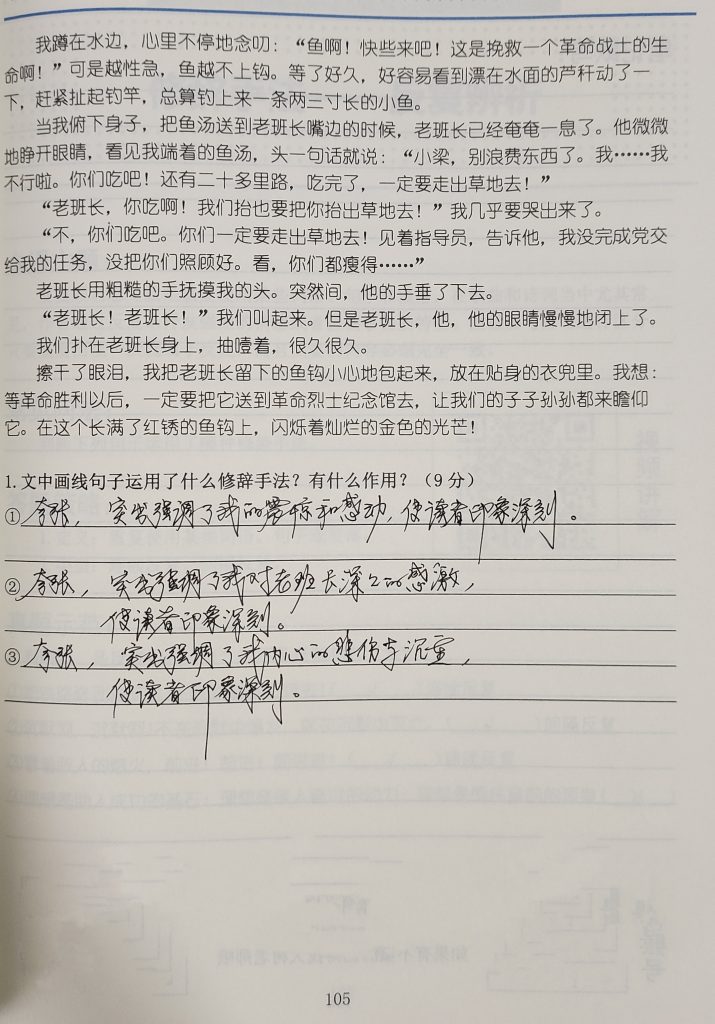 我蹲在水边，心里不停地念叨：“鱼啊！快些来吧！这是挽救一个革命战士的生
命啊！”可是越性急，鱼越不上钩。等了好久，好容易看到漂在水面的芦秆动了一
下，赶紧扯起钓竿，总算钓上来一条两三寸长的小鱼。
当我俯下身子，把鱼汤送到老班长嘴边的时候，老班长已经奄奄一息了。他微微
地睁开眼睛，看见我端着的鱼汤，头一句话就说：“小梁，别浪费东西了。我……我
不行啦。你们吃吧！还有二十多里路，吃完了，一定要走出草地去！”
“老班长，你吃啊！我们抬也要把你抬出草地去！”我几乎要哭出来了。
“不，你们吃吧。你们一定要走出草地去！见着指导员，告诉他，我没完成党交
给我的任务，没把你们照顾好。看，你们都瘦得……”
老班长用粗糙的手抚摸我的头。突然间，他的手垂了下去。
“老班长！老班长！”我们叫起来。但是老班长，他，他的眼睛慢慢地闭上了。
我们扑在老班长身上，抽噎着，很久很久。
擦干了眼泪，我把老班长留下的鱼钩小心地包起来，放在贴身的衣兜里。我想：
等革命胜利以后，一定要把它送到革命烈士纪念馆去，让我们的子子孙孙都来瞻仰
它。在这个长满了红锈的鱼钩上，闪烁着灿烂的金色的光芒！
1.文中画线句子运用了什么修辞手法？有什么作用？（9分）
①夸张，突出强调了我的震惊和感动，使读者印象深刻。
②夸张，突出强调了我对老班长深深的感激，
使读者印象深刻。
③夸张，突出强调了我内心的悲伤与沉重，
使读者印象深刻。
105